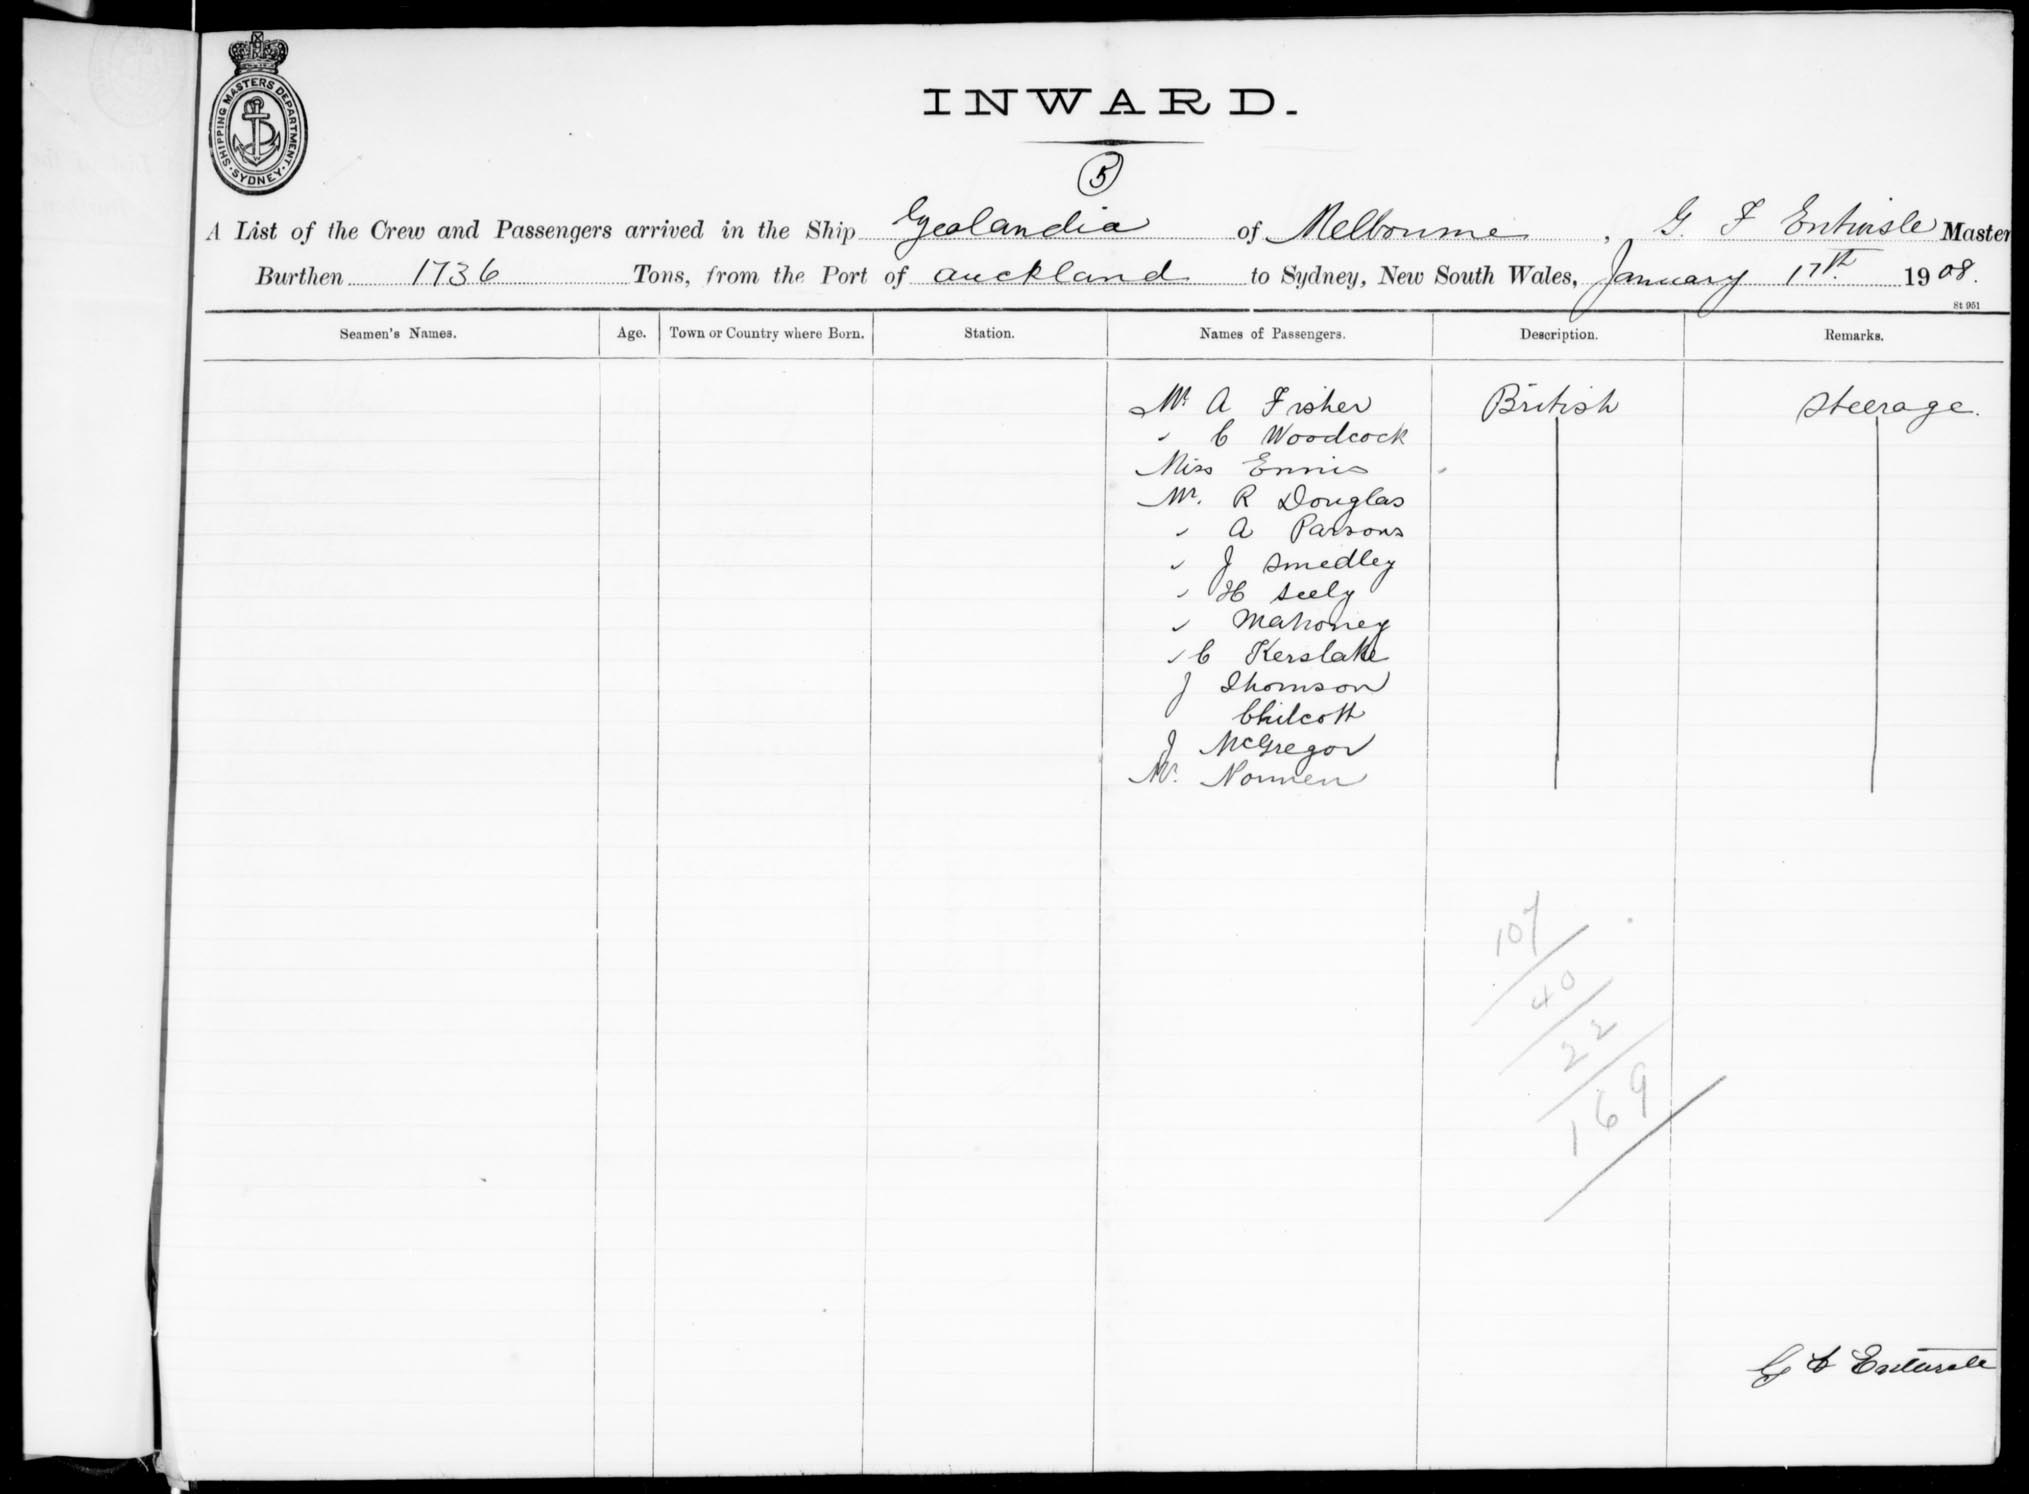 SHIPPING MASTERS DEPARTMENT
SYDNEY
INWARD.
5
A List of the Crew and Passengers arrived in the Ship Zealandia of Melbourne, G. F Entwisle Master
Burthen 1736 Tons, from the Port of Auckland to Sydney, New South Wales, January 17th 1908.
St 951
Seamen's Names. Age. Town or Country where Born. Station. Names of Passengers. Description. Remarks.
Mr A Fisher British Steerage.
" C Woodcock
Miss Ennis
Mr. R Douglas
" A Parsons
" J Smedley
" H Seely
" Mahoney
" C Kerslake
J Thomson
Chilcott
J McGregor
Mr. Nornen
107
40
22
169
G F Entwisle